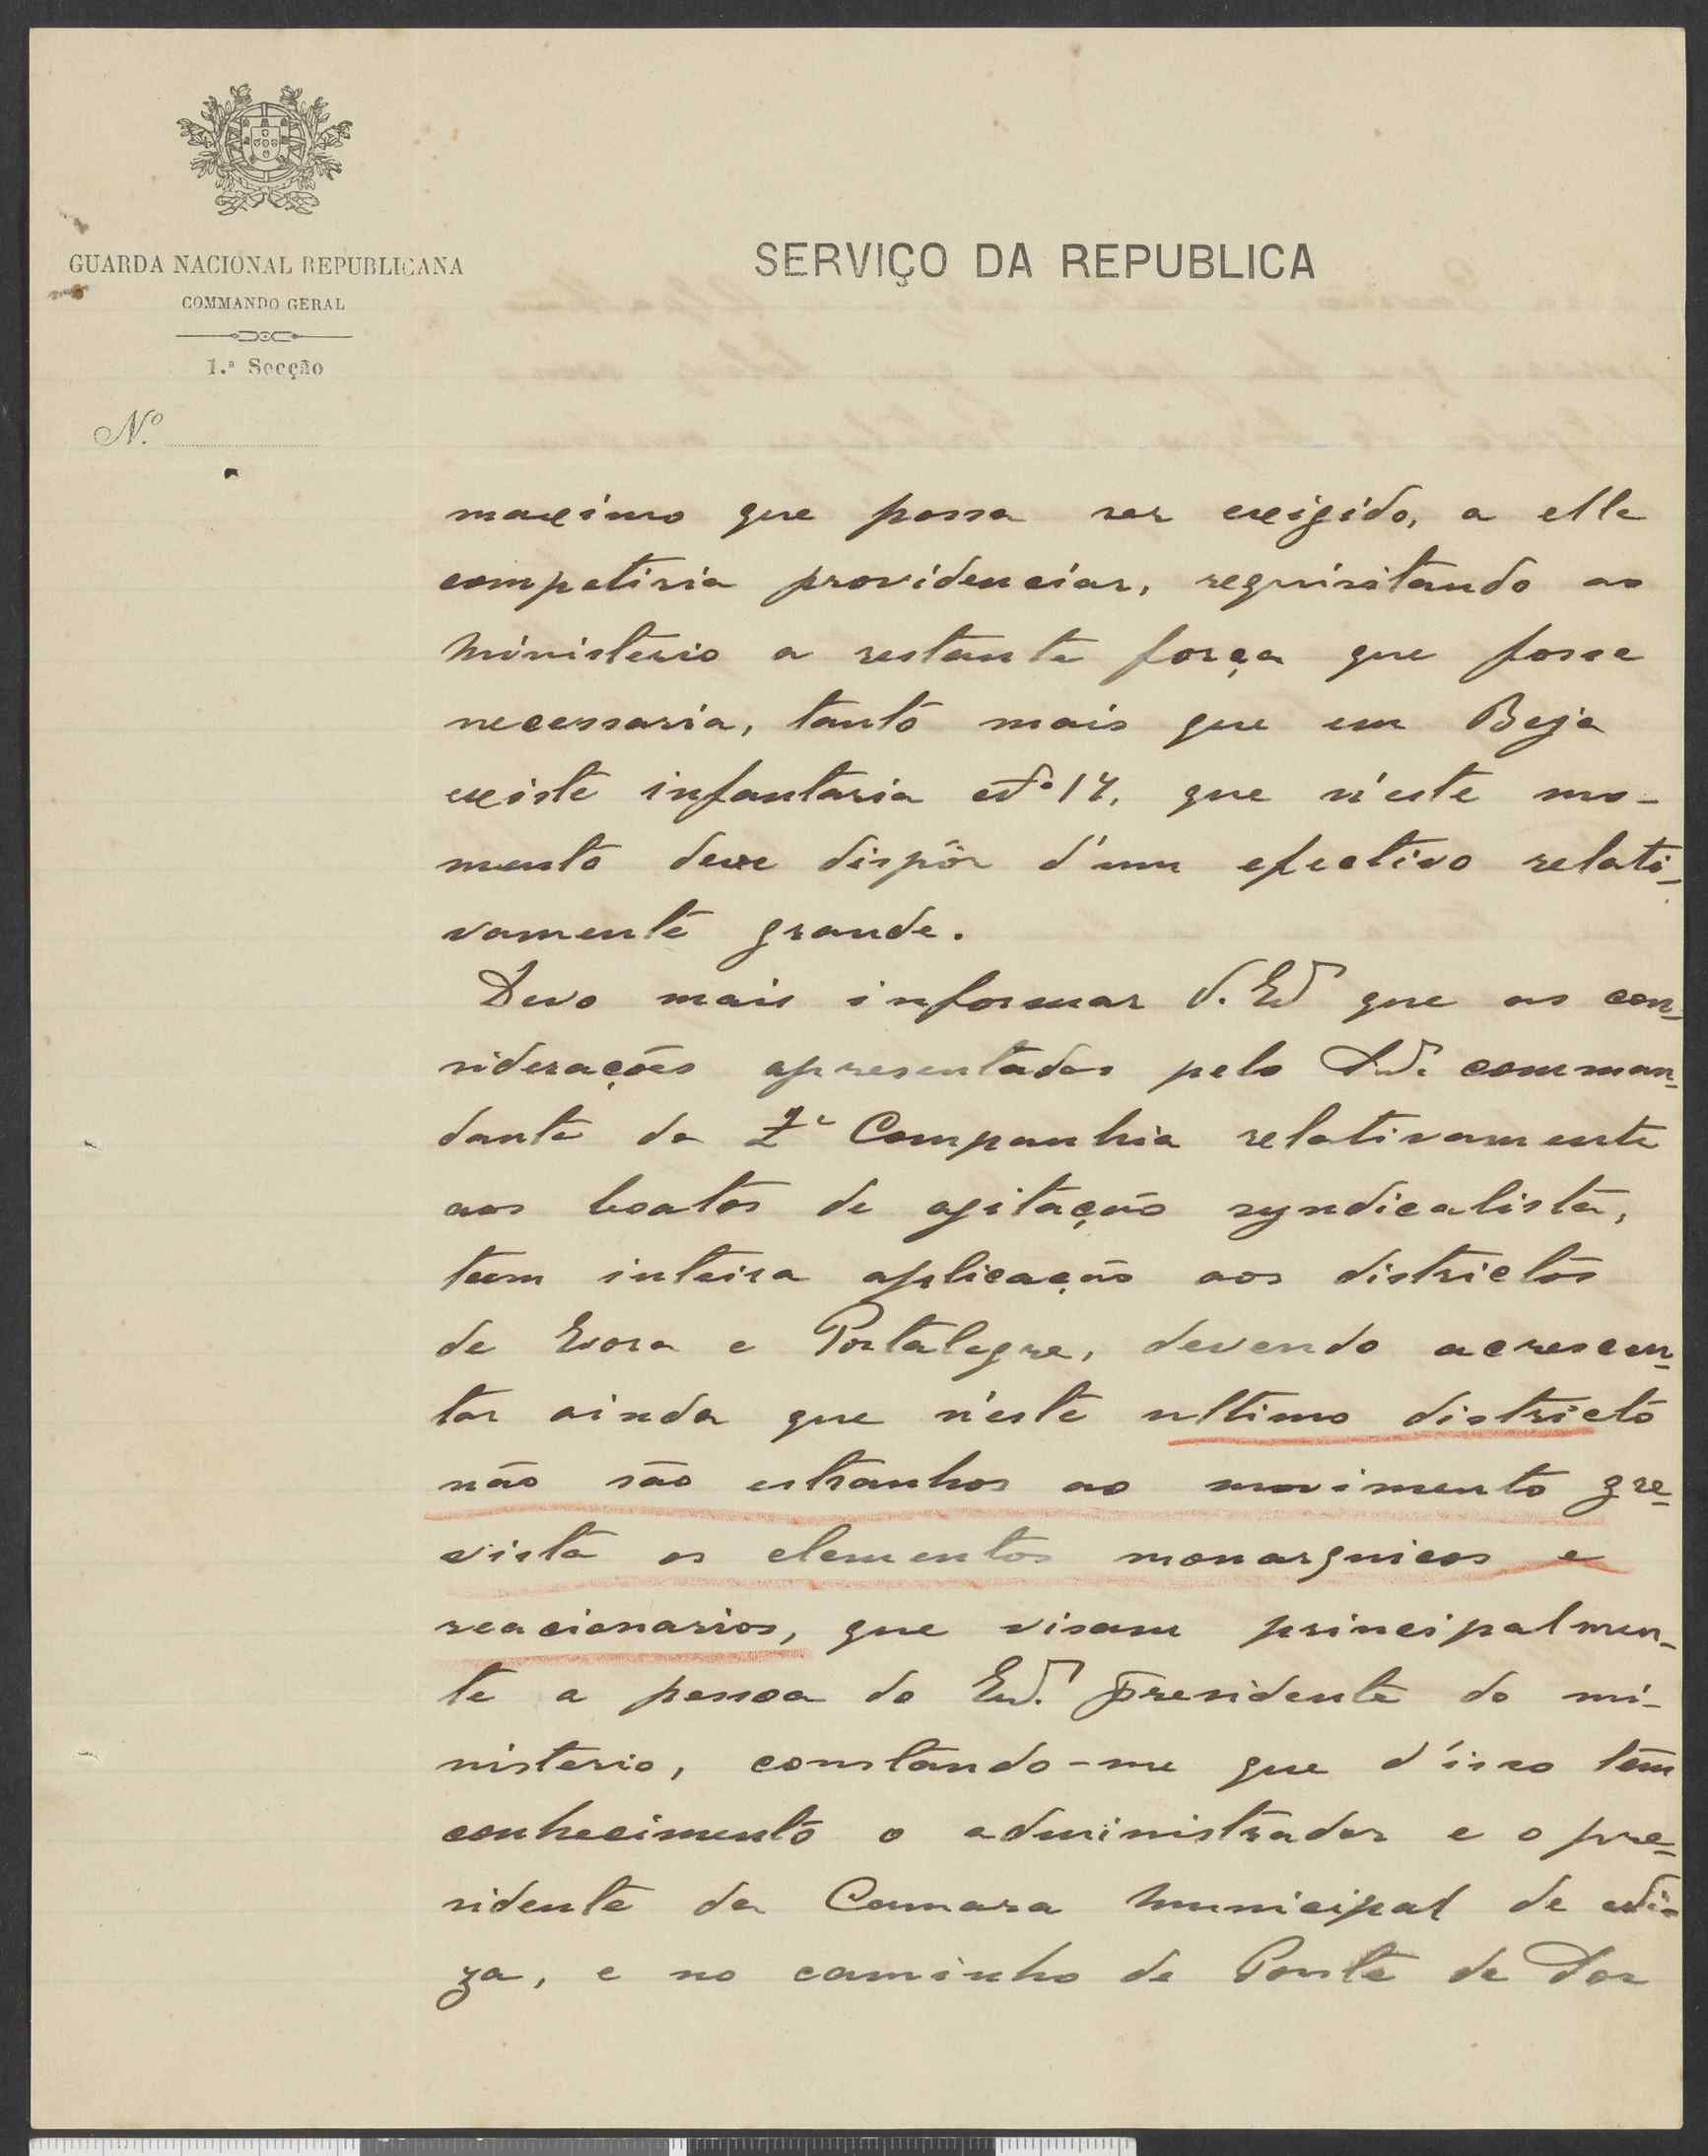 GUARDA NACIONAL REPUBLICANA
COMMANDO GERAL
1.ª Secção
N.º
SERVIÇO DA REPUBLICA
maximo que possa ser exigido, a elle
competiria providenciar, requisitando ao
Ministerio a restante força que fosse
necessaria, tanto mais que em Beja
existe infantaria Nº 17, que n'este mo-
mento deve dispôr d'um efectivo relati-
vamente grande.
Devo mais informar V. Exª que as con-
siderações apresentadas pelo Snr. comman-
dante da 2ª Companhia relativamente
aos boatos de agitação syndicalista,
teem inteira aplicação aos districtos
de Evora e Portalegre, devendo acrescen-
tar ainda que n'este ultimo districto
não são estranhos ao movimento gre-
vista os elementos monarquicos e
reacionarios, que visam principalmen-
te a pessoa do Exmº presidente do mi-
nisterio, constando-me que d'isso têm
conhecimento o administrador e o pre-
sidente da Camara Municipal de Ni-
za, e no caminho de Ponte de Sor